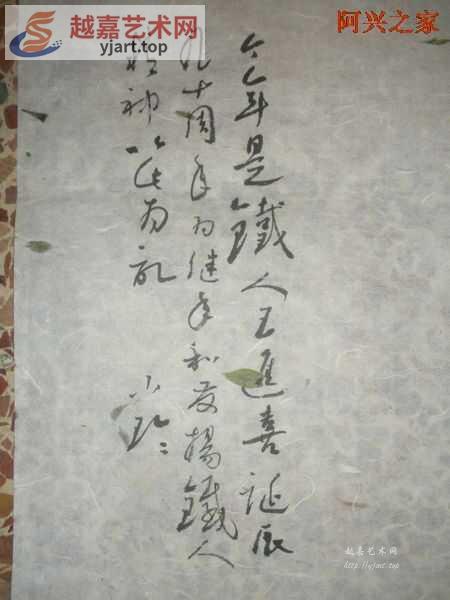 越嘉艺术网
yjart.top
阿兴之家
今年是鐵人王進喜誕辰
九十周年为继承和发揚鐵人
精神以此为記
越嘉艺术网
http://yjart.top